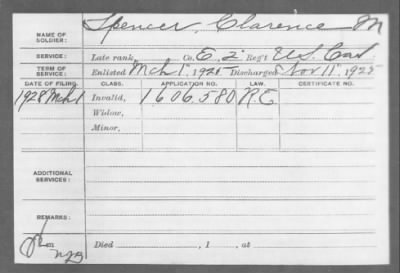 NAME OF SOLDIER: Spencer, Clarence M
SERVICE: Late rank, Co. E, 2" Reg't U.S. Cav
TERM OF SERVICE: Enlisted Mch 1", 1925 Discharged Nov 11", 1925
DATE OF FILING. CLASS. APPLICATION NO. LAW. CERTIFICATE NO.
1928 Mch 1 Invalid, 1606,580 R.E.
Widow,
Minor,
ADDITIONAL SERVICES:
REMARKS:
Died , 1 , at